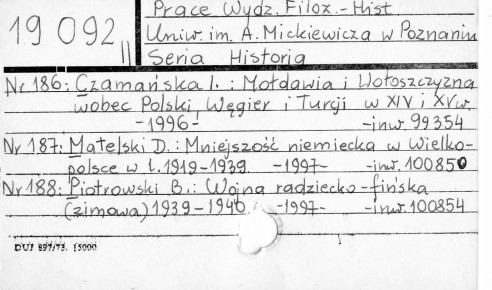 19 092
II
Prace Wydz. Filoz.-Hist
Uniw. im. A. Mickiewicza w Poznaniu
Seria Historia
Nr 186: Czamańska I. : Mołdawia i Wołoszczyzna
wobec Polski Węgier i Turcji w XIV i XV w.
-1996- -inw. 99354
Nr 187: Matelski D. : Mniejszość niemiecka w Wielko-
polsce w l. 1919-1939. -1997- -inw. 100850
Nr 188: Piotrowski B. : Wojna radziecko-fińska
(zimowa) 1939-1940 -1997- -inw. 100854
DUJ 897/73. 15000